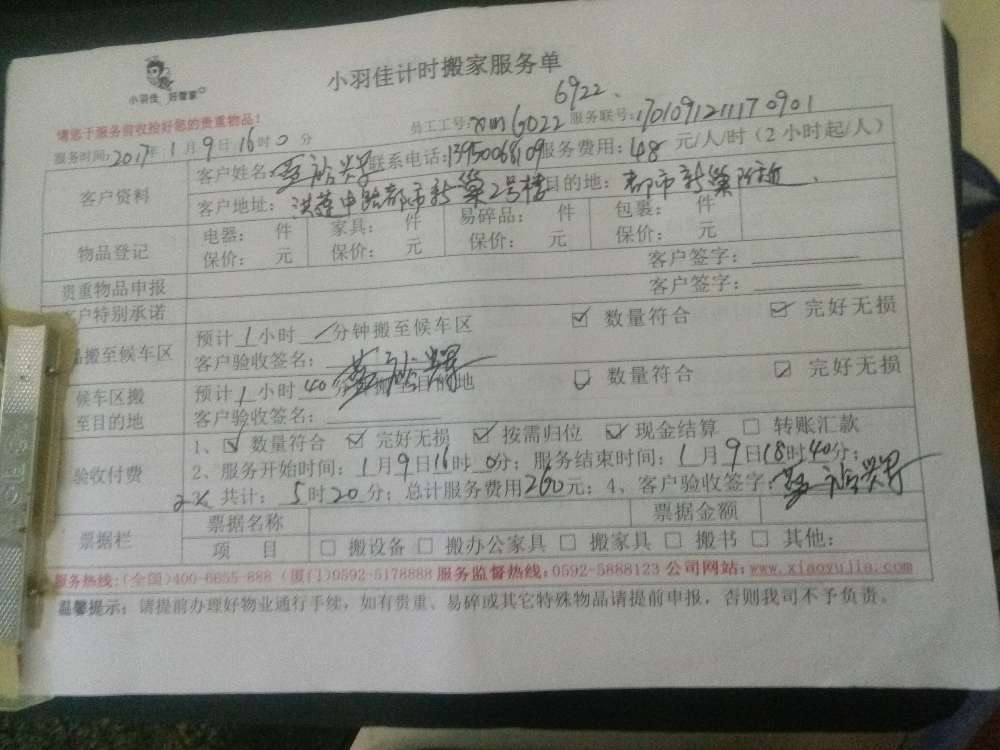 小羽佳计时搬家服务单
小羽佳 好管家
6922
请您于服务前收拾好您的贵重物品!
员工工号: 6022 服务联号:170109121117 0901
服务时间:2017年1月9日16时0分
客户资料
客户姓名: 联系电话:13950068109 服务费用:48元/人/时(2小时起/人)
客户地址: 洪莲中路都市新巢2号楼 目的地: 都市新巢附近
物品登记
电器: 件 家具: 件 易碎品: 件 包装: 件
保价: 元 保价: 元 保价: 元 保价: 元
贵重物品申报 客户签字:
客户特别承诺 客户签字:
品搬至候车区
预计1小时 分钟搬至候车区 数量符合 完好无损
客户验收签名:
候车区搬
至目的地
预计1小时40分 目的地 数量符合 完好无损
客户验收签名:
验收付费
1、 数量符合 完好无损 按需归位 现金结算 转账汇款
2、服务开始时间:1月9日16时0分;服务结束时间:1月9日18时40分;
共计:5时20分;总计服务费用260元;4、客户验收签字:
票据栏
票据名称 票据金额
项 目 搬设备 搬办公家具 搬家具 搬书 其他:
服务热线:(全国)400-6655-888 (厦门)0592-5178888 服务监督热线:0592-5888123 公司网站:www.xiaoyujia.com
温馨提示:请提前办理好物业通行手续,如有贵重、易碎或其它特殊物品请提前申报,否则我司不予负责。